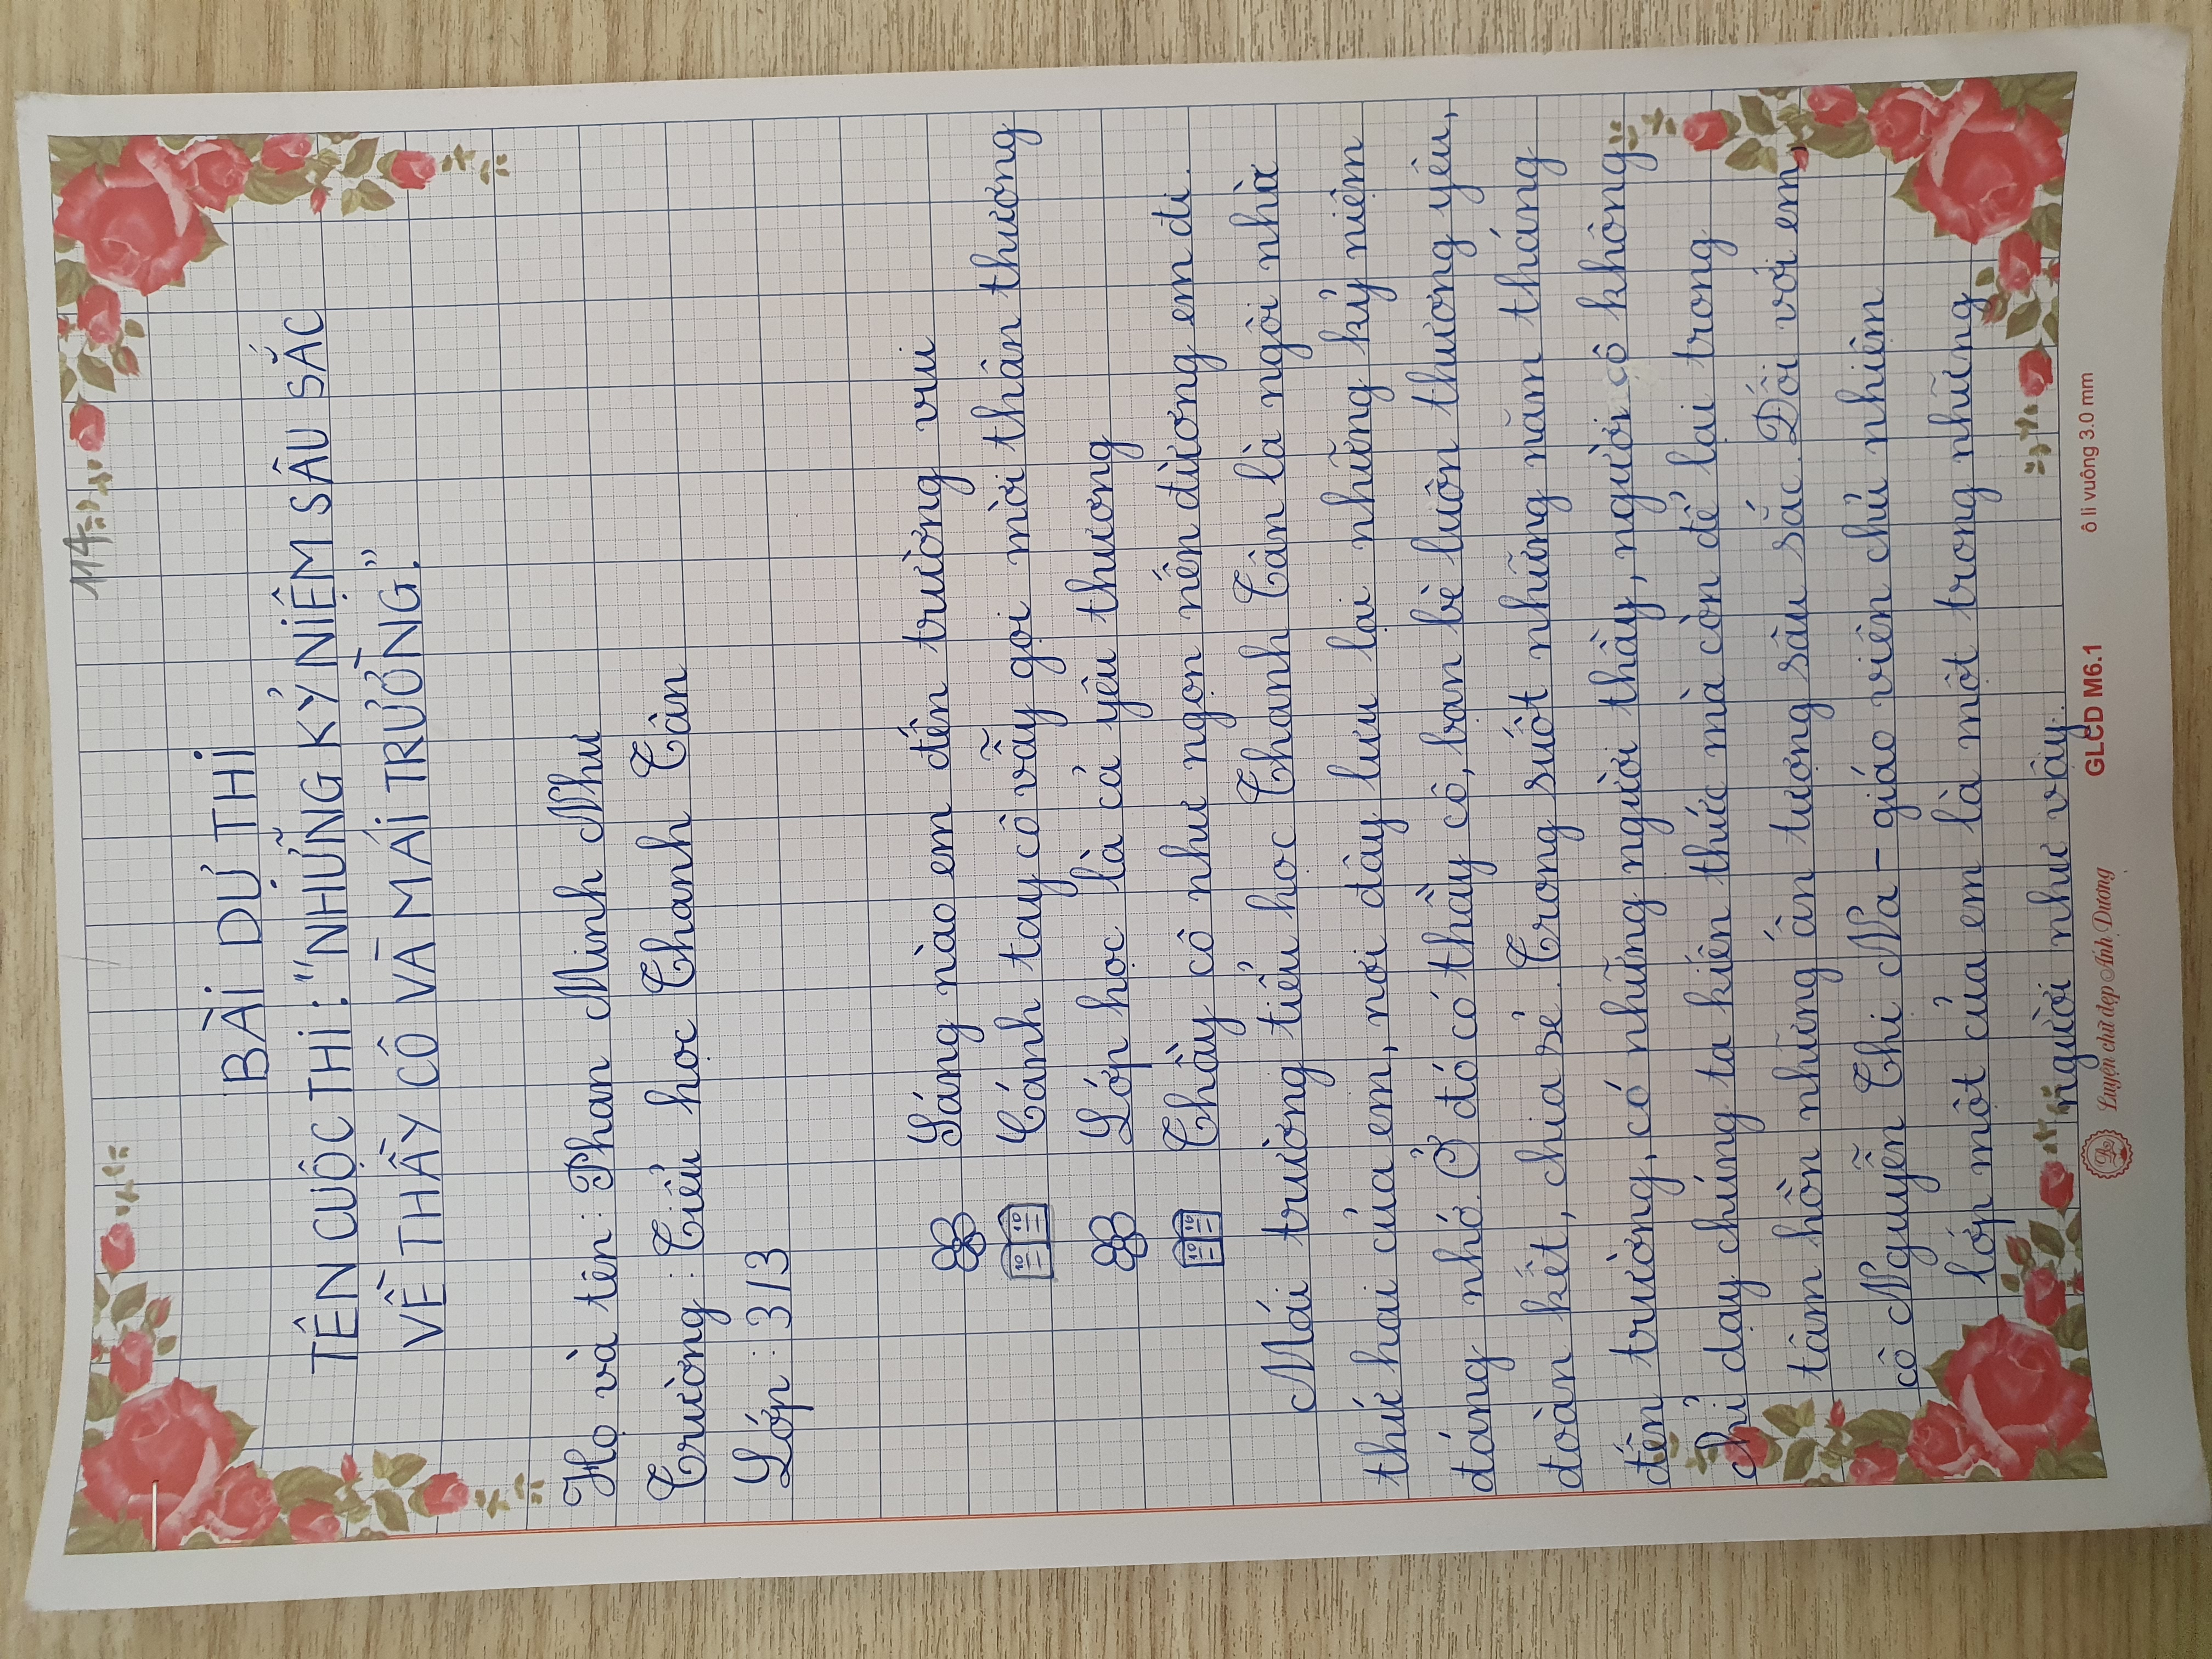 114
BÀI DỰ THI
TÊN CUỘC THI: "NHỮNG KỶ NIỆM SÂU SẮC
VỀ THẦY CÔ VÀ MÁI TRƯỜNG."
Họ và tên: Phan Minh Như
Trường: Tiểu học Thanh Tân
Lớp: 3/3
Sáng nào em đến trường vui
Cánh tay cô vẫy gọi mời thân thương
Lớp học là cả yêu thương
Thầy cô như ngọn nến đường em đi.
Mái trường tiểu học Thanh Tân là ngôi nhà
thứ hai của em, nơi đây lưu lại những kỷ niệm
đáng nhớ. Ở đó có thầy cô, bạn bè luôn thương yêu,
đoàn kết, chia sẻ. Trong suốt những năm tháng
đến trường, có những người thầy, người cô không
chỉ dạy chúng ta kiến thức mà còn để lại trong
tâm hồn những ấn tượng sâu sắc. Đối với em,
cô Nguyễn Thị Na - giáo viên chủ nhiệm
lớp một của em là một trong những
người như vậy.
Luyện chữ đẹp Ánh Dương GLCD M6.1 ô li vuông 3.0 mm